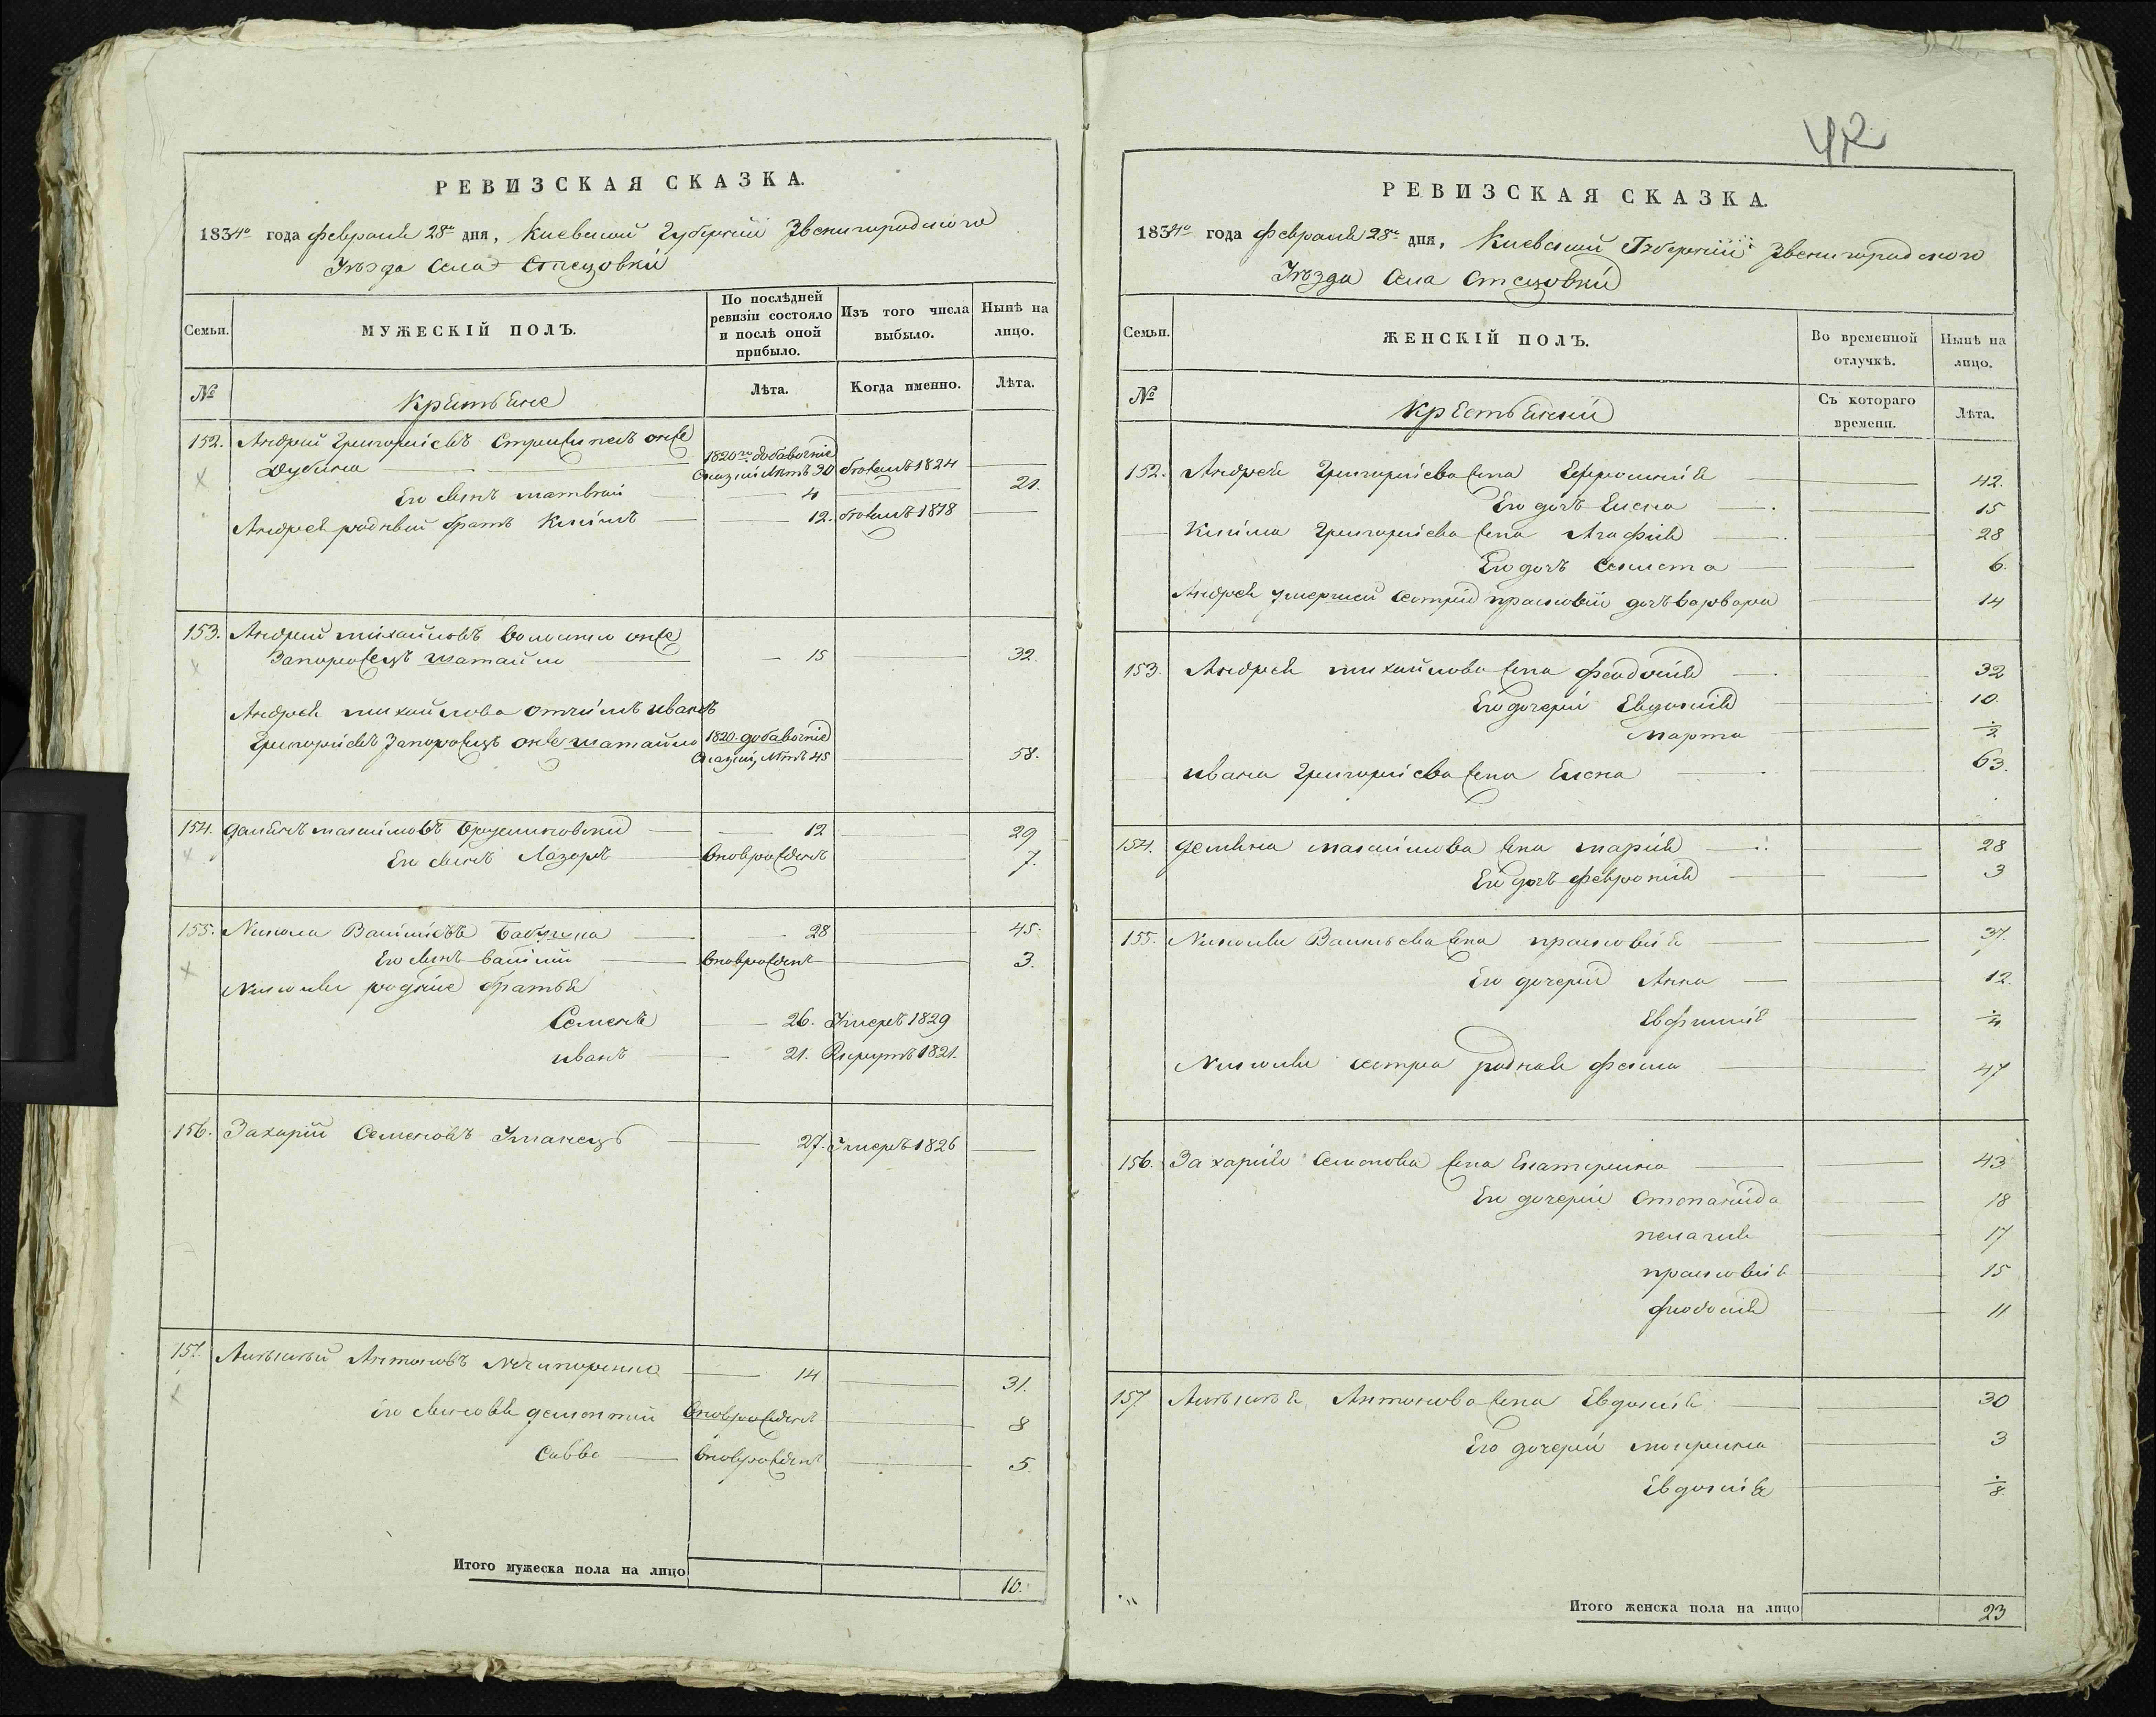 РЕВИЗСКАЯ СКАЗКА.
1834го года февраля 28го дня, Киевской Губернии Звенигородского
Уѣзда Села Стецовки
Семьи.
МУЖЕСКІЙ ПОЛЪ.
По послѣдней ревизіи состояло и послѣ оной прибыло.
Изъ того числа выбыло.
Нынѣ на лицо.
№
Крестьяне
Лѣта.
Когда именно.
Лѣта.
152. Андрей Григориевъ онже
Дубина 1820го добавочніе Сказки Лѣтъ 30 1824
Его сынъ матвѣй 4 21.
Андрея родный братъ Климъ 12. 1818
153. Андрей михайловъ онже
Запорожецъ шатайло 15 32.
Андрея михайлова отчимъ иванъ
Григориевъ Запорожецъ онже шатайло 1820 добавочніе Сказки, Лѣтъ 45 58.
154. демьянъ максимовъ 12 29
Его сынъ Лазоръ вновърожденъ 7.
155. Никола Василіевъ Бабушка 28 45.
Его сынъ василий вновърожденъ 3.
Николы родніе братья
Семенъ 26. Умеръ 1829
иванъ 21. Рекрутъ 1821.
156. Захарій Семеновъ Уманецъ 27. Умеръ 1826
157. Антоновъ Нечипоренко 14 31.
его сыновья дементий вновърожденъ 8
Савва вновърожденъ 5.
Итого мужеска пола на лицо 10.
42
РЕВИЗСКАЯ СКАЗКА.
1834го года февраля 28го дня, Киевской Губерніи Звенигородского
Уѣзда Села Стецовки
Семьи.
ЖЕНСКІЙ ПОЛЪ.
Во временной отлучкѣ.
Нынѣ на лицо.
№
Крестьянки
Съ котораго времени.
Лѣта.
152. Андрея Григориева жена Ефросинія 42.
Его дочъ Елена 15
Клима Григориева жена Агафія 28
Его дочъ 6.
Андрея умершей сестри прасковіи дочъ варвара 14
153. Андрея михайлова жена феодосія 32
Его дочери Евдокія 10.
марта 2
ивана Григориева жена Елена 63.
154. демьяна максимова жена марія 28
Его дочъ февронія 3
155. Николы Васильева жена прасковія 37.
Его дочери Анна 12.
Евфимія 4
Николы сестра родная фекла 47
156. Захарія Семенова жена Екатерина 43
Его дочери Степанида 18
пелагия 17
прасковія 15
феодосія 11
157. Антонова жена Евдокія 30
Его дочери мокрина 3
Евдокія 8.
Итого женска пола на лицо 23